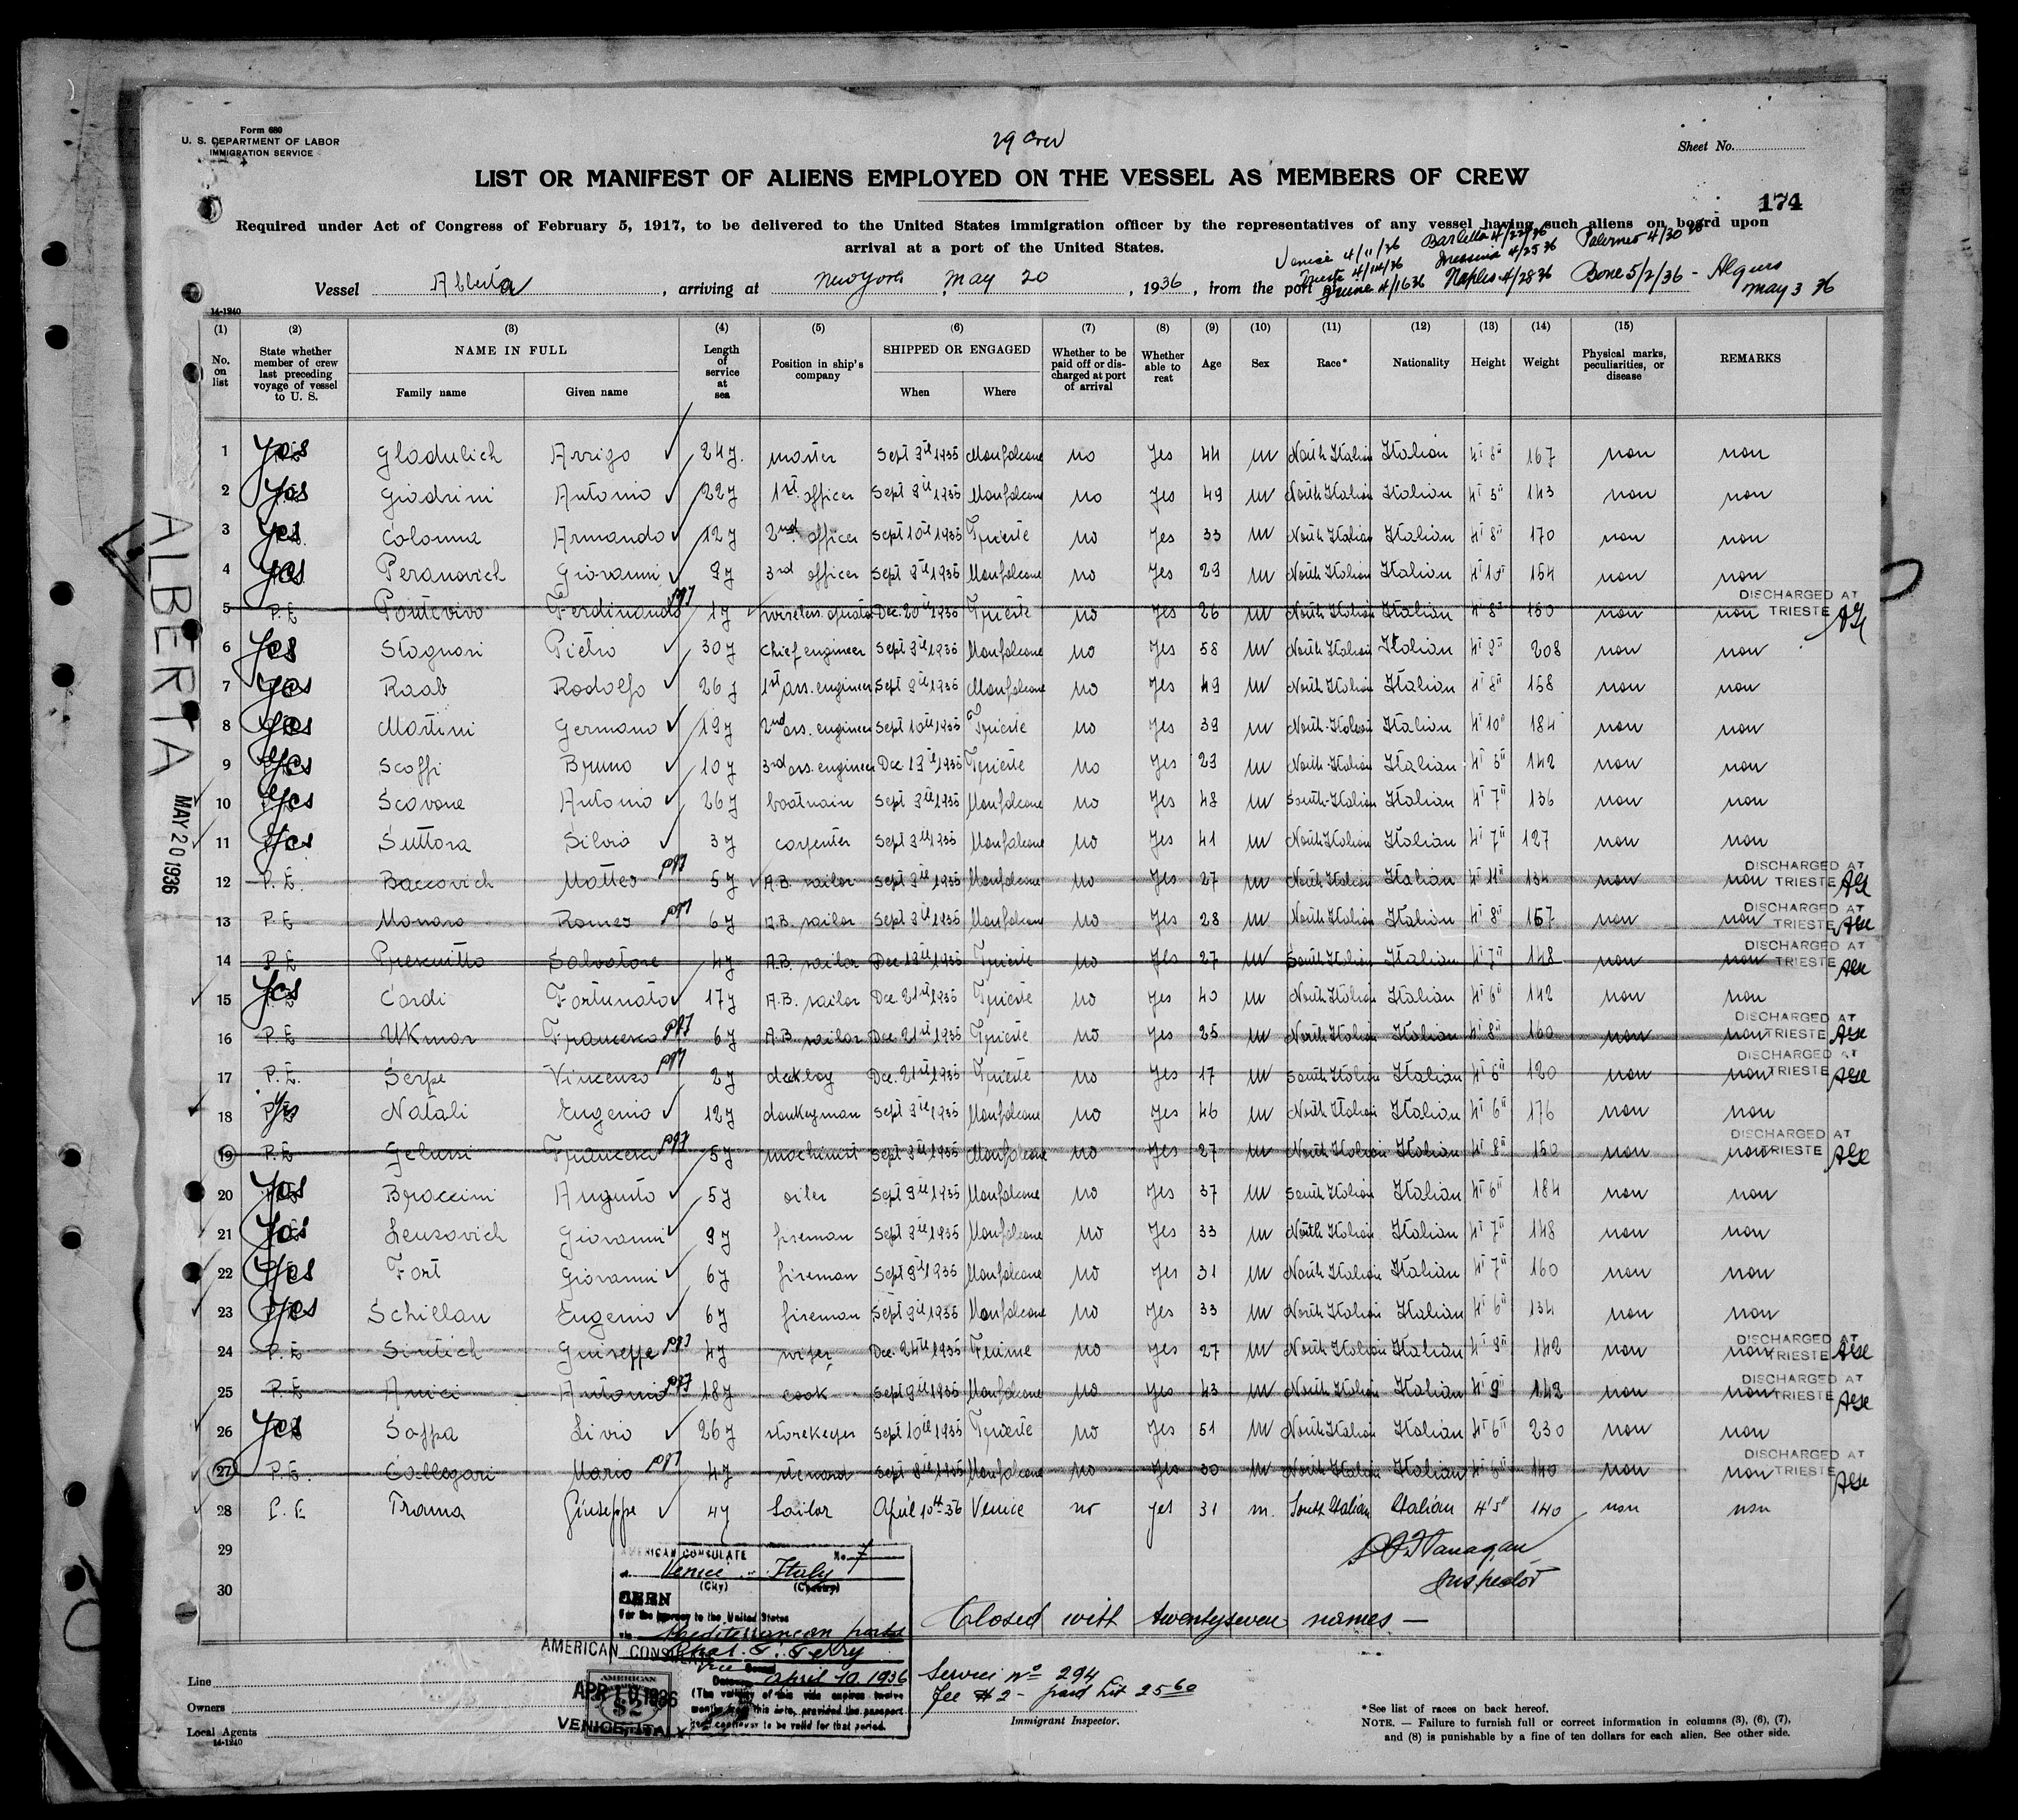 Form 680
U. S. DEPARTMENT OF LABOR
IMMIGRATION SERVICE
29 crew
Sheet No.
LIST OR MANIFEST OF ALIENS EMPLOYED ON THE VESSEL AS MEMBERS OF CREW
174
Required under Act of Congress of February 5, 1917, to be delivered to the United States immigration officer by the representatives of any vessel having such aliens on board upon
arrival at a port of the United States.
Venice 4/11/36 Barletta 4/22/36 Palermo 4/30 36
Trieste 4/14/36 Messina 4/25 36
Fiume 4/16 36 Naples 4/28 36 Bone 5/2/36 - Algiers May 3 36
Vessel Alberta, arriving at New York May 20, 1936, from the port of
14-1240
(1) (2) (3) (4) (5) (6) (7) (8) (9) (10) (11) (12) (13) (14) (15)
No. on list State whether member of crew last preceding voyage of vessel to U. S. NAME IN FULL Family name Given name Length of service at sea Position in ship's company SHIPPED OR ENGAGED When Where Whether to be paid off or discharged at port of arrival Whether able to read Age Sex Race* Nationality Height Weight Physical marks, peculiarities, or disease REMARKS
1 Yes Gladulich Arrigo 24y. master Sept 3th 1935 Monfalcone no Yes 44 m North Italian Italian 4' 8" 167 non non
2 Yes Giadrini Antonio 22y 1st officer Sept 3th 1935 Monfalcone no Yes 49 m North Italian Italian 4' 5" 143 non non
3 Yes Colonna Armando 12y 2nd officer Sept 10th 1935 Trieste no Yes 33 m North Italian Italian 4' 8" 170 non non
4 Yes Peranovich Giovanni 9y 3rd officer Sept 3th 1935 Monfalcone no Yes 29 m North Italian Italian 4' 10" 154 non non
5 P.E Pontevivo Ferdinando 1y wireless operator Dec. 20th 1935 Trieste no Yes 26 m North Italian Italian 4' 8" 150 non non DISCHARGED AT TRIESTE
6 Yes Stagnari Pietro 30y Chief engineer Sept 3th 1935 Monfalcone no Yes 58 m North Italian Italian 4' 9" 208 non non
7 Yes Raab Rodolfo 26y 1st ass. engineer Sept 3th 1935 Monfalcone no Yes 49 m North Italian Italian 4' 8" 158 non non
8 Yes Martini Germano 19y 2nd ass. engineer Sept 10th 1935 Trieste no Yes 39 m North-Italian Italian 4' 10" 184 non non
9 Yes Scoffi Bruno 10y 3rd ass. engineer Dec. 13th 1935 Trieste no Yes 29 m North Italian Italian 4' 5" 142 non non
10 Yes Scavone Antonio 26y boatswain Sept 3th 1935 Monfalcone no Yes 48 m South-Italian Italian 4' 7" 136 non non
11 Yes Suttora Silvio 3y carpenter Sept 3th 1935 Monfalcone no Yes 41 m North Italian Italian 4' 7" 127 non non
12 P.E. Baccovich Matteo 5y A.B. sailor Sept 3th 1935 Monfalcone no Yes 27 m North Italian Italian 4' 11" 134 non non DISCHARGED AT TRIESTE
13 P.E Monaro Romeo 6y A.B. sailor Sept 3th 1935 Monfalcone no Yes 28 m North Italian Italian 4' 8" 157 non non DISCHARGED AT TRIESTE
14 P.E Salvatore 4y A.B. sailor Dec 13th 1935 Trieste no Yes 27 m South Italian Italian 4' 7" 148 non non DISCHARGED AT TRIESTE
15 Yes Cordi Fortunato 17y A.B. sailor Dec. 21th 1935 Trieste no Yes 40 m North Italian Italian 4' 6" 142 non non
16 P.E Ukmar Francesco 6y A.B. sailor Dec. 21th 1935 Trieste no Yes 25 m North Italian Italian 4' 8" 160 non non DISCHARGED AT TRIESTE
17 P.E. Serpe Vincenzo 2y deckboy Dec. 21th 1935 Trieste no Yes 17 m South Italian Italian 4' 5" 120 non non DISCHARGED AT TRIESTE
18 Yes Natali Eugenio 12y donkeyman Sept 3th 1935 Monfalcone no Yes 46 m North Italian Italian 4' 6" 176 non non
19 P.E Francesco 5y machinist Sept 3th 1935 Monfalcone no Yes 27 m North Italian Italian 4' 8" 150 non non DISCHARGED AT TRIESTE
20 Yes Braccini Augusto 5y oiler Sept 9th 1935 Monfalcone no Yes 37 m South Italian Italian 4' 6" 184 non non
21 Yes Leusovich Giovanni 9y fireman Sept 3th 1935 Monfalcone no Yes 33 m North Italian Italian 4' 7" 148 non non
22 Yes Fort Giovanni 6y fireman Sept 9th 1935 Monfalcone no Yes 31 m North Italian Italian 4' 7" 160 non non
23 Yes Schillan Eugenio 6y fireman Sept 9th 1935 Monfalcone no Yes 33 m North Italian Italian 4' 6" 134 non non
24 P.E Sintich Giuseppe 4y wiper Dec. 24th 1935 Fiume no Yes 27 m North Italian Italian 4' 9" 142 non non DISCHARGED AT TRIESTE
25 P.E Amici Antonio 18y cook Sept 9th 1935 Monfalcone no Yes 43 m North Italian Italian 4' 9" 142 non non DISCHARGED AT TRIESTE
26 Yes Saffa Livio 26y storekeeper Sept 10th 1935 Trieste no Yes 51 m North Italian Italian 4' 6" 230 non non
27 P.E. Callegari Mario 4y steward Sept 3th 1935 Monfalcone no Yes 30 m North Italian Italian 4' 6" 140 non non DISCHARGED AT TRIESTE
28 P.E Trama Giuseppe 4y Sailor April 10th 36 Venice no yes 31 m. South Italian Italian 4' 5" 140 non non
29
30
Flanagan
Inspector
Closed with twentyseven names —
ALBERTA
MAY 20 1936
AMERICAN CONSULATE No. 7
at Venice Italy
(City) (Country)
SEEN
For the journey to the United States
via Mediterranean ports
Chas. T. Terry
Vice Consul
Date April 10. 1936
(The validity of this visa expires twelve
months from this date, provided the passport
continues to be valid for that period.
AMERICAN CONSULATE
APR 10 1936
VENICE, ITALY
AMERICAN
$2
Service No 294
Fee $2 - paid Lit 25 60
Immigrant Inspector.
Line
Owners
Local Agents
14-1240
*See list of races on back hereof.
NOTE. — Failure to furnish full or correct information in columns (3), (6), (7),
and (8) is punishable by a fine of ten dollars for each alien. See other side.